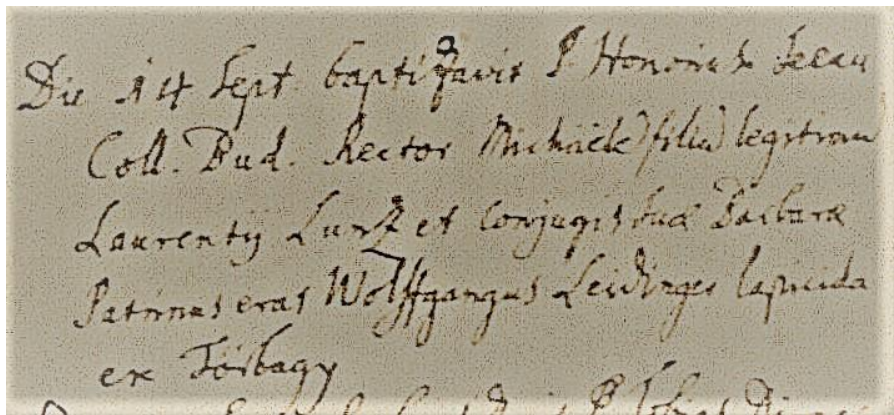 Die 14 Sept. baptisavit P. Honorius
Coll. Bud. Rector Michäele filiu legitimu
Laurentÿ Lunz et conjugis suæ Barbaræ
Patrinus erat Wolffgangus Leidinger lapicida
ex Törbagy